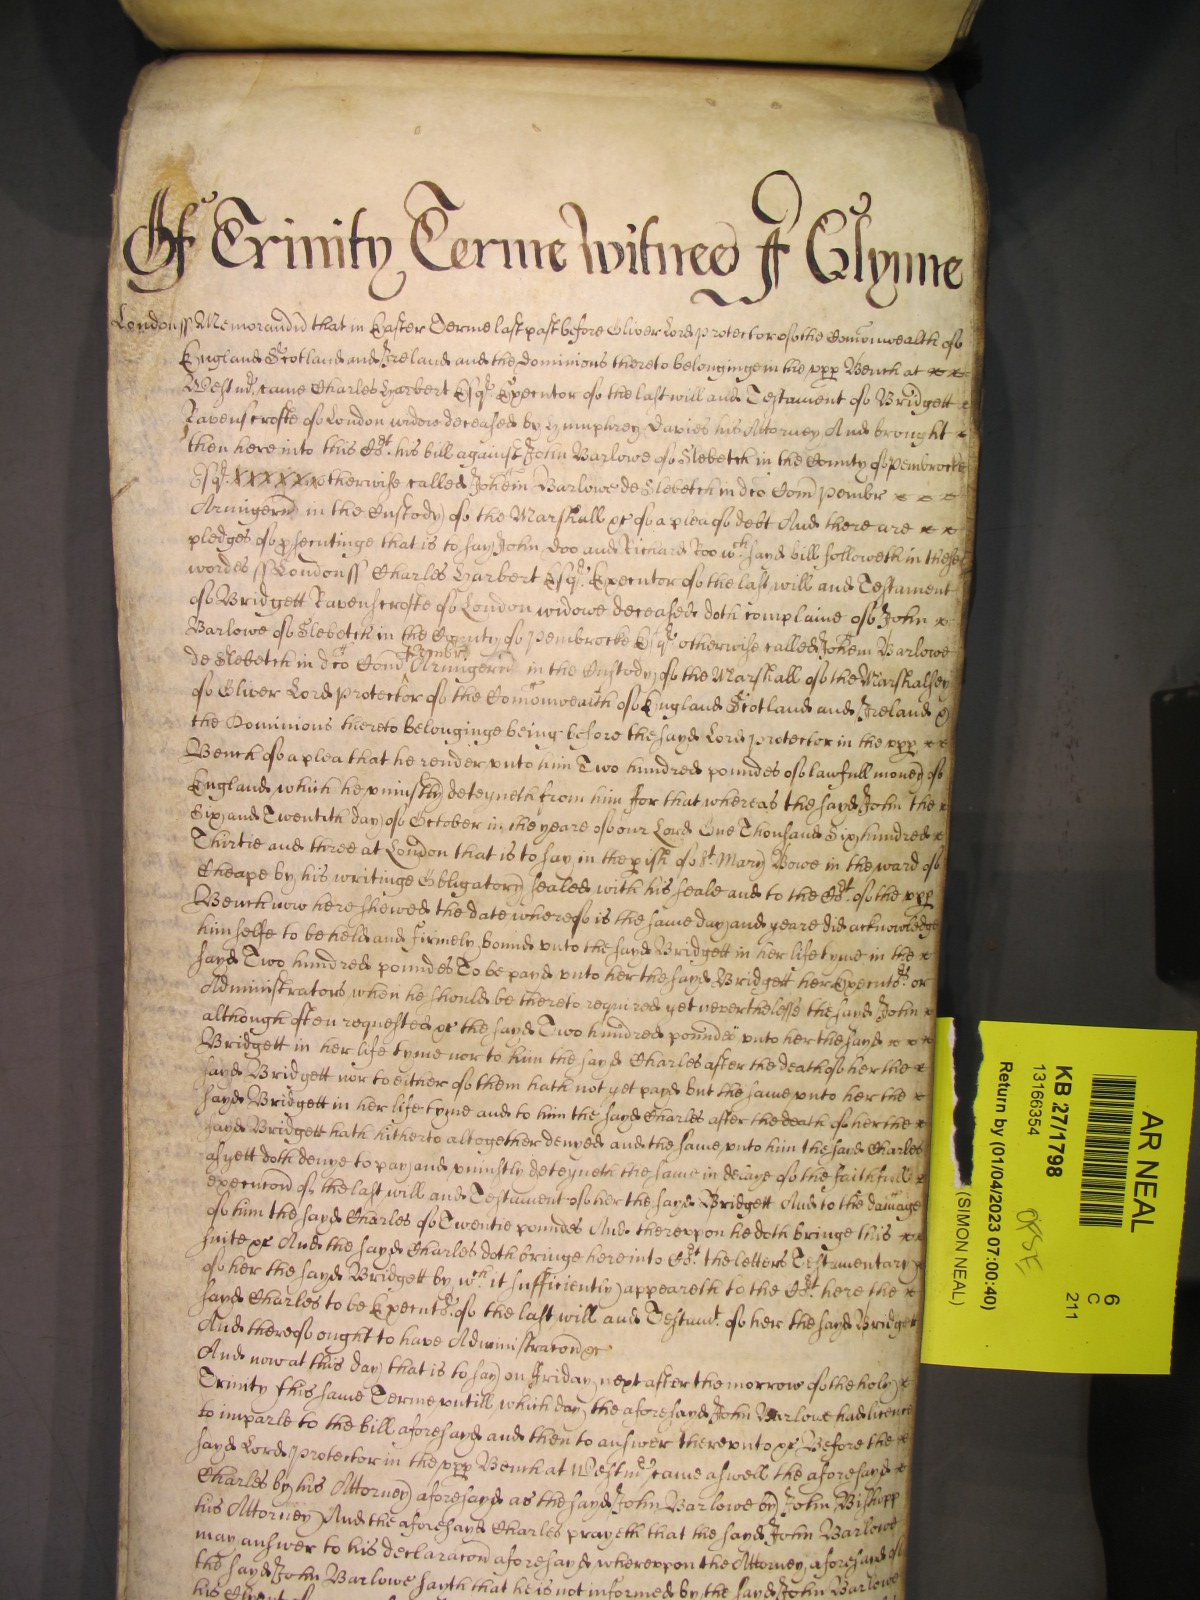 Of Trinity Terme Witnes J Glynne
Londonss Memorandu that in Easter Terme last past before Oliver Lord Protector of the Comonwealth of
England Scotland and Ireland and the Dominions thereto belonginge in the upp Bench at x x
Westmr. came Charles Harbert Esqr. Executor of the last will and Testament of Bridgett x
Ravenscrofte of London widow deceased by Humphrey Davies his Attorney And brought x
then here into this Cort. his bill against John Barlowe of Slebetch in the County of Pembrocke
Esqr. xxxxx otherwise called Johem Barlowe de Slebetch in dco Com Pembr x x x
Armigeru in the Custody of the Marshall &c of a plea of debt And there are x x
pledges of psecutinge that is to say John Doo and Richard Roo wch. said bill followeth in these
wordes ss Londonss Charles Harbert Esqr. Executor of the last will and Testament
of Bridgett Ravenscrofte of London widowe deceased doth complaine of John x
Barlowe of Slebetch in the County of Pembrocke Esqr. otherwise called Johem Barlowe
de Slebetch in dco Com Pembr Armigeru in the Custody of the Marshall of the Marshalsey
of Oliver Lord Protector of the Comonwealth of England Scotland and Ireland &
the Dominions thereto belonginge being before the sayd Lord Protector in the upp x x
Bench of a plea that he render unto him Two hundred poundes of lawfull money of
England which he uniustly deteyneth from him For that whereas the sayd John the x
Six and Twentith day of October in the yeare of our Lord One Thousand Six hundred x
Thirtie and three at London that is to say in the pish of St. Mary Bowe in the ward of
Cheape by his writinge Obligatory sealed with his seale and to the Cort. of the upp
Bench now here shewed the date whereof is the same day and yeare did acknowledge
himselfe to be held and firmely bound unto the sayd Bridgett in her life tyme in the x
sayd Two hundred poundes To be payd unto her the sayd Bridgett her Executors. or
Administrators when he should be thereto required yet neverthelesse the sayd John x
although often requested &c the sayd Two hundred poundes unto her the sayd x x x
Bridgett in her life tyme nor to him the sayd Charles after the death of her the x
sayd Bridgett nor to either of them hath not yet payd but the same unto her the x
sayd Bridgett in her life tyme and to him the sayd Charles after the death of her the x
sayd Bridgett hath hitherto altogether denyed and the same unto him the said Charles
as yett doth denye to pay and uniustly deteyneth the same in delaye of the faithfull x
execucon of the last will and Testament of her the sayd Bridgett And to the damage
of him the sayd Charles of Twentie poundes And thereupon he doth bringe this x x
suite &c And the sayd Charles doth bringe here into Cort. the letters Testamentary x
of her the sayd Bridgett by wch. it sufficiently appeareth to the Cort. here the x
sayd Charles to be Executr. of the last will and Testamt. of her the sayd Bridget
And thereof ought to have Administracon &c
And now at this day that is to say on Friday next after the morrow of the holy x
Trinity this same Terme untill which day the aforesayd John Barlowe had licence
to imparle to the bill aforesayd and then to answer thereunto &c Before the x
sayd Lord Protector in the upp Bench at Westmr. came aswell the aforesayd x
Charles by his Attorney aforesayd as the sayd John Barlowe by John Bishopp
his Attorney And the aforesayd Charles prayeth that the sayd John Barlowe
may answer to his declaracon aforesayd whereupon the Attorney aforesayd of
the sayd John Barlowe sayth that he is not informed by the sayd John Barlowe
his Clyent of
AR NEAL
6
C
211
KB 27/1798
13166354
Return by (01/04/2023 07:00:40)
(SIMON NEAL)